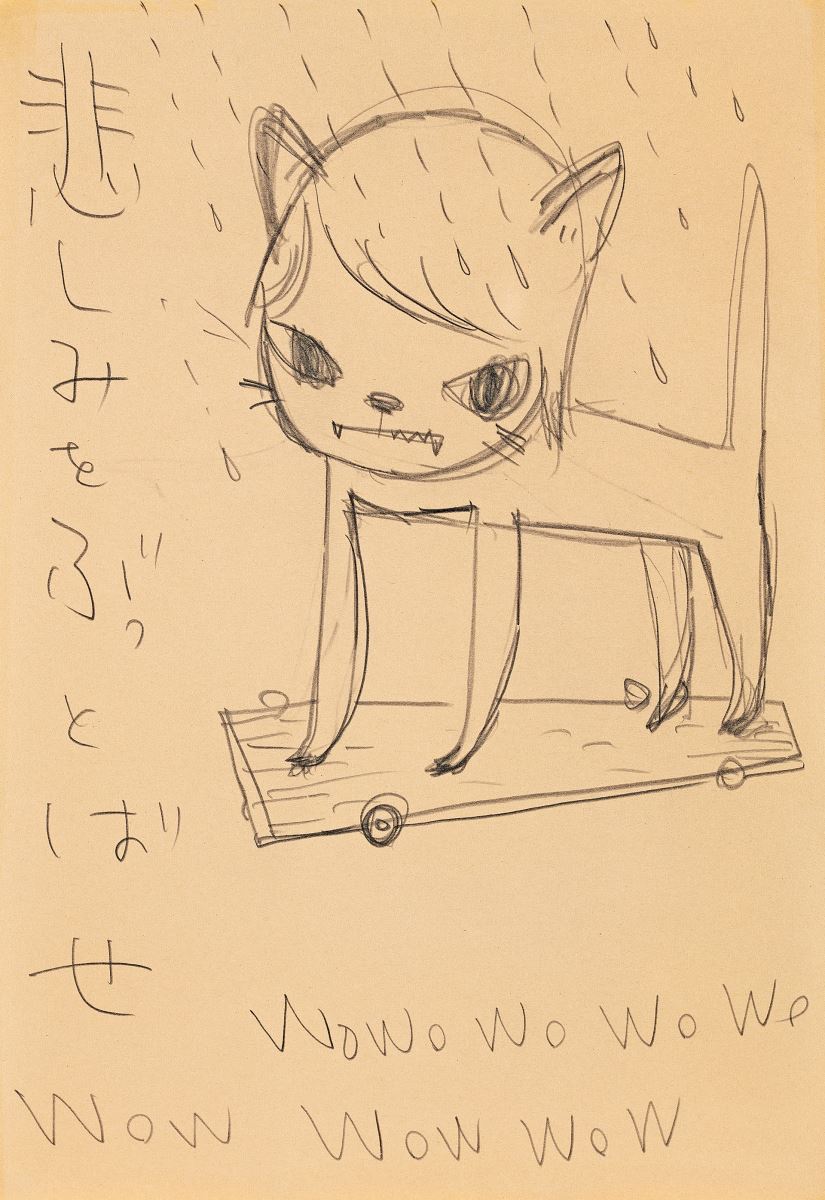 悲しみをぶっとばせ
WoWo Wo Wo We
Wow Wow WoW